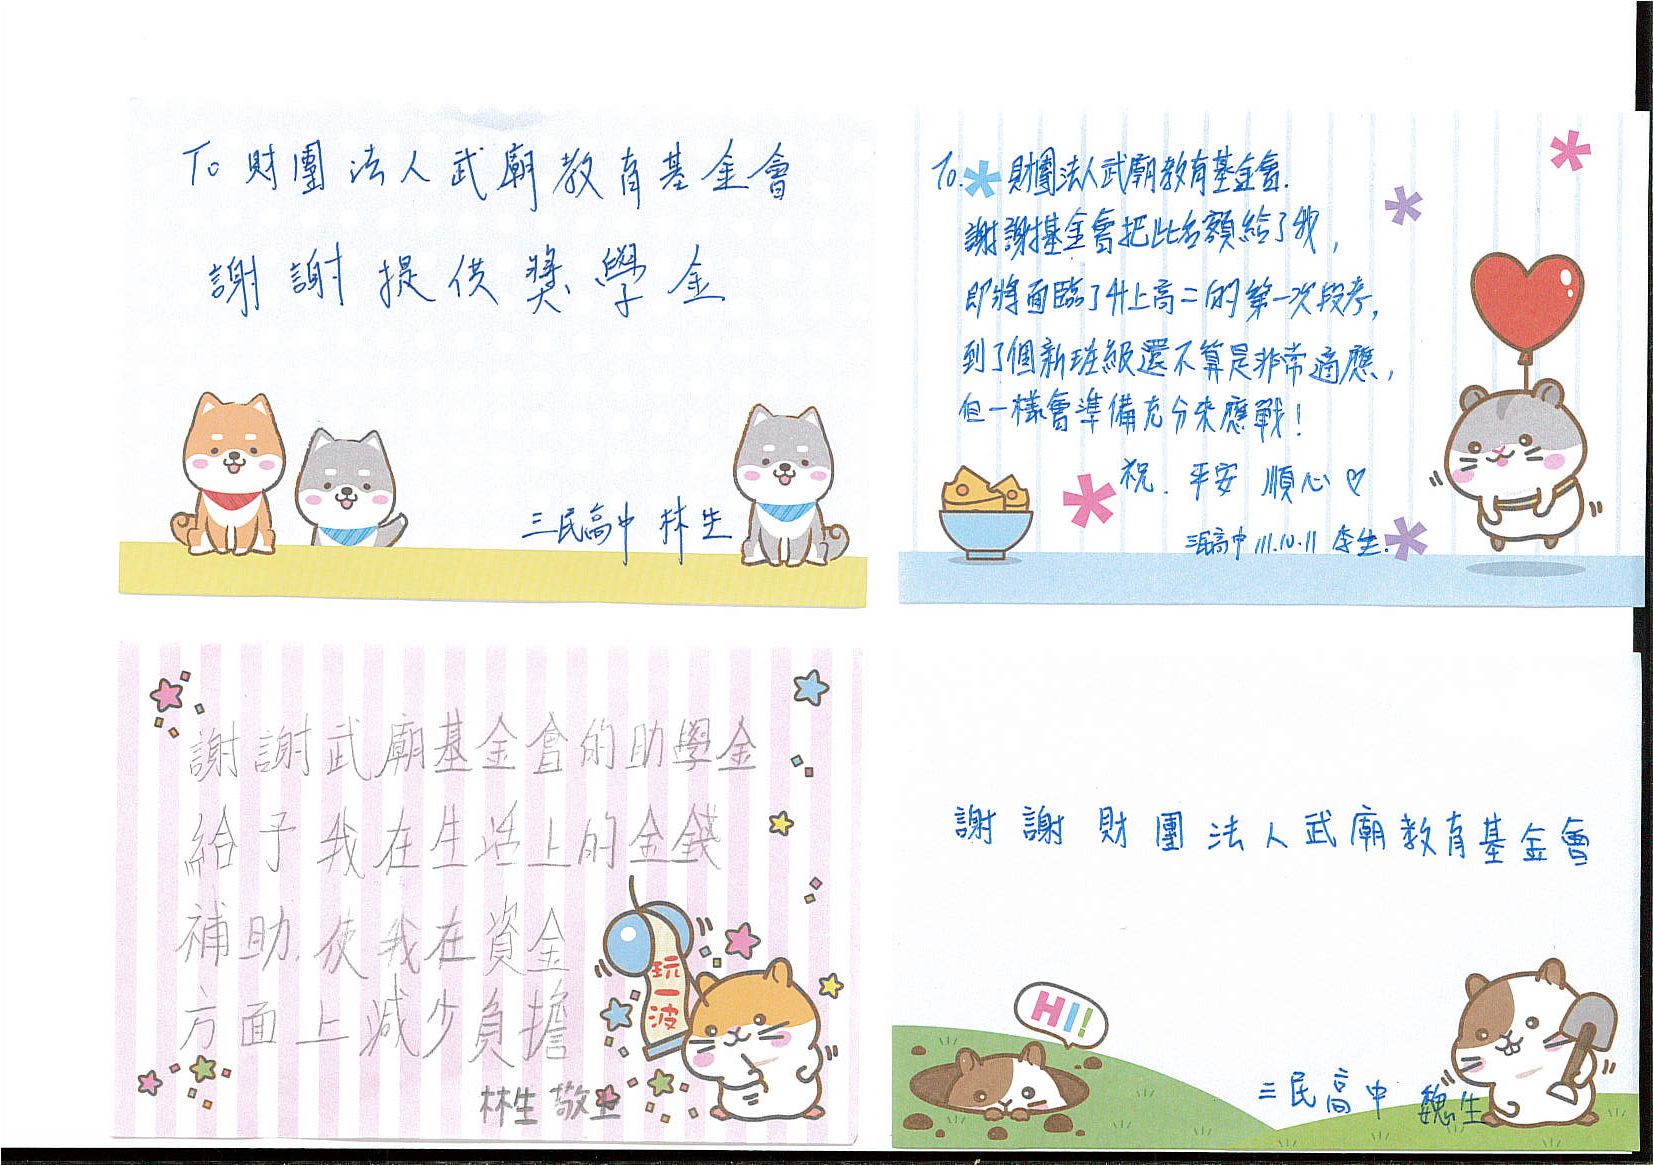 To 財團法人武廟教育基金會
謝謝提供獎學金
三民高中 林生
To. 財團法人武廟教育基金會.
謝謝基金會把此名額給了我,
即將面臨了升上高二的第一次段考,
到了個新班級還不算是非常適應,
但一樣會準備充分來應戰!
祝. 平安 順心♡
三民高中 111.10.11 李生.
謝謝武廟基金會的助學金
給予我在生活上的金錢
補助.使我在資金
方面上減少負擔
林生 敬上
玩一波
謝謝財團法人武廟教育基金會
HI!
三民高中 魏生